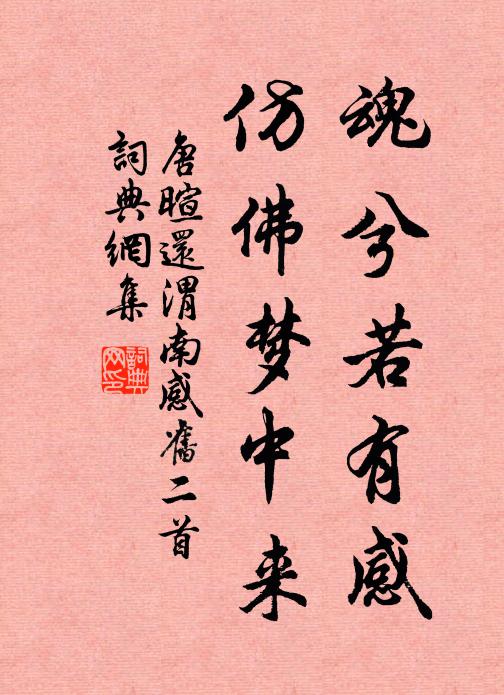 魂兮若有感
仿佛梦中来
唐暄還渭南感舊二首
詞典網集
詞典
网印